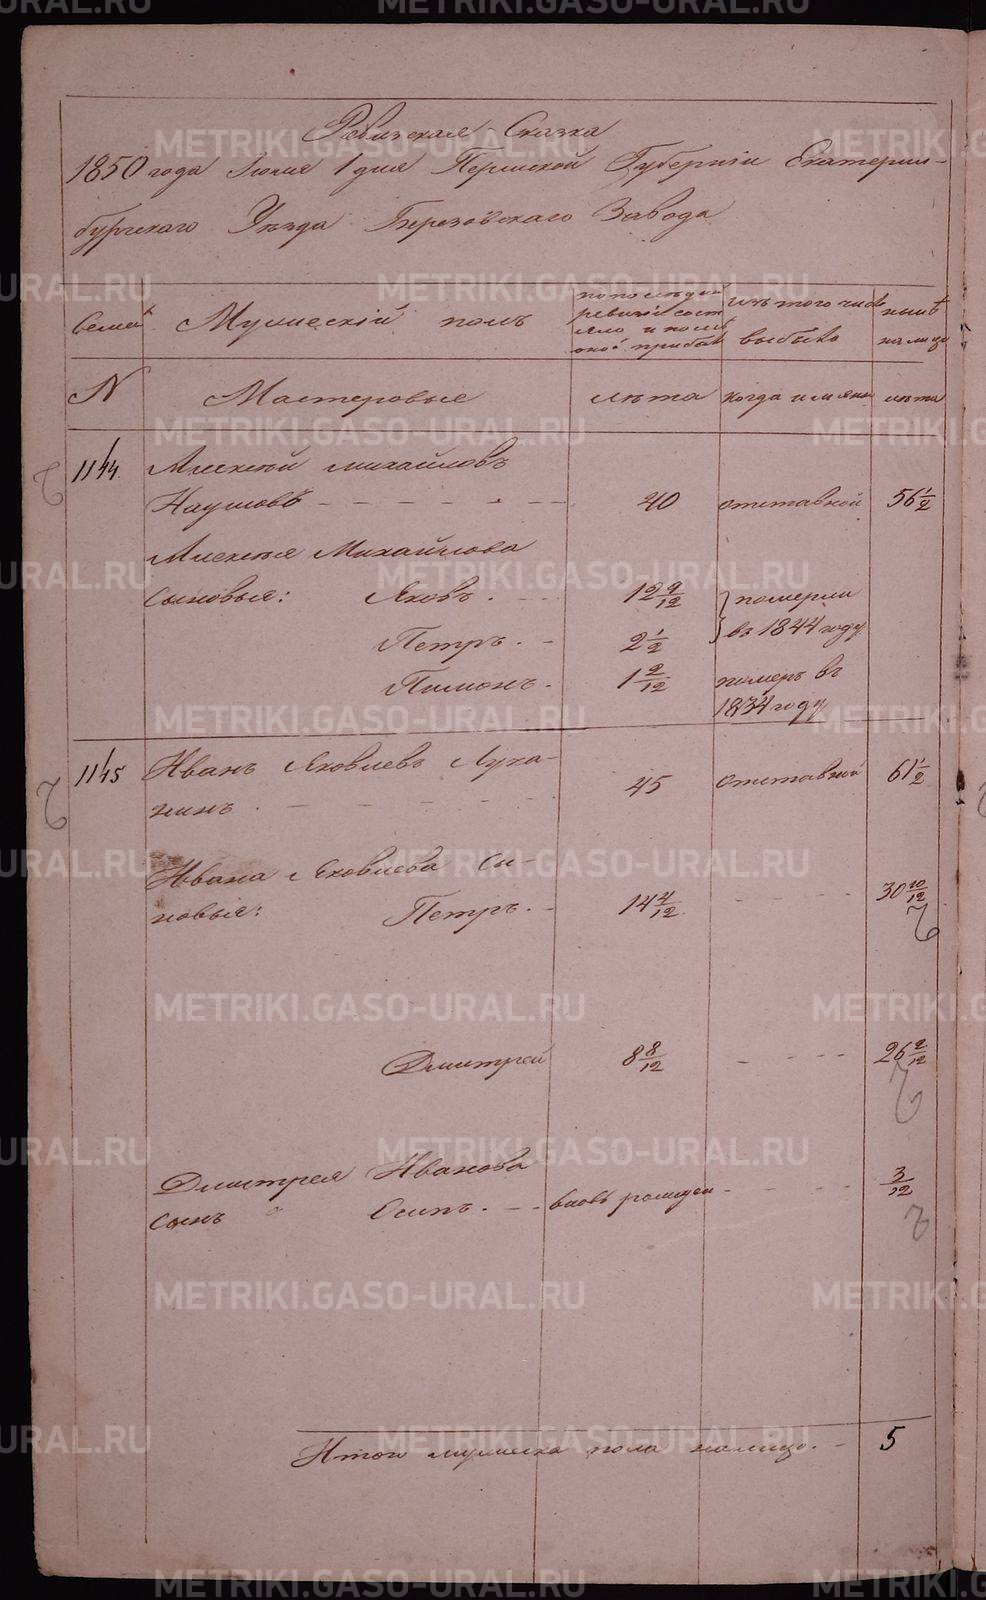 Ревизская Сказка
1850 года Июля 1 дня Пермской Губернии Екатерин-
бургскаго Уезда Березовскаго Завода
Семей Мужескій полъ
по последней
ревизіи сост
ояло и после
оной прибыло
изъ того числа
выбыло
ныне
на лицо
N Мастеровые лета когда имянно лета
1144 Алексей Михайловъ
Наумовъ - - - - - - 40 отставной 56 1/2
Алексея Михайлова
Сыновья: Яковъ. - - 12 9/12 } померли
Петръ. - 2 1/2 } въ 1844 году
Пимонъ. 1 2/12 померъ въ
1834 году
1145 Иванъ Яковлевъ Луха-
нинъ. - - - - - - 45 отставной 61 1/2
Ивана Яковлева Сы-
новья: Петръ. - 14 4/12 - - - - 30 10/12
Дмитрей 8 8/12 - - - - 26 2/12
Дмитрея Иванова
Сынъ Осипъ. - - вновь рожден - - - - 3/12
Итого мужеска пола налицо. - 5
METRIKI.GASO-URAL.RU